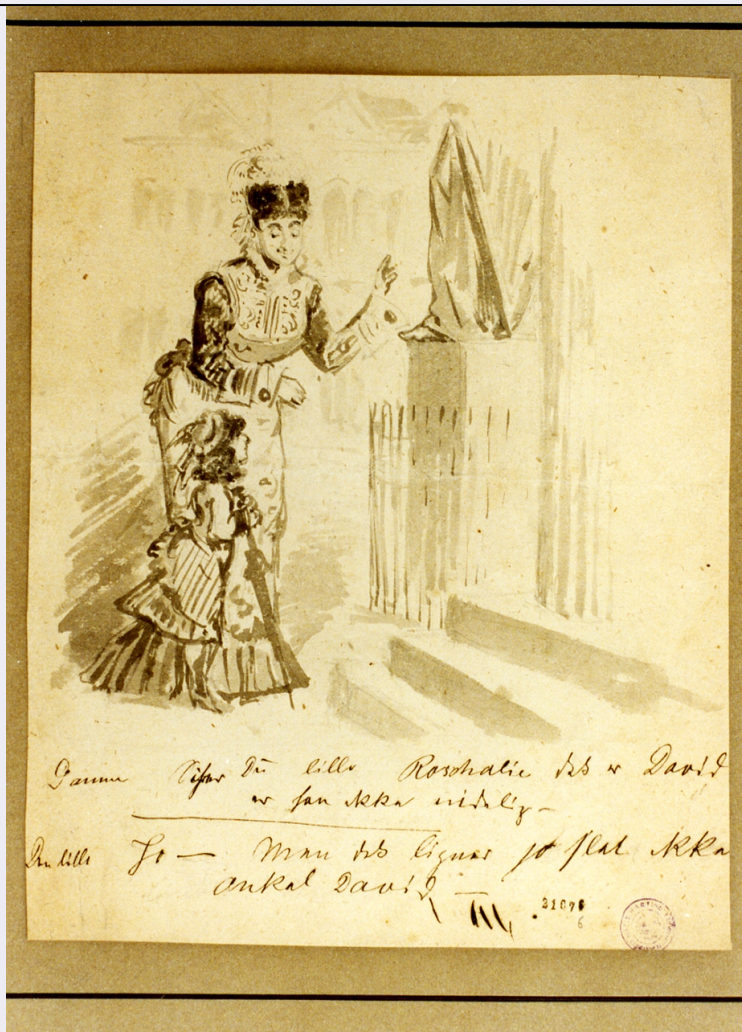 Damen Siher Du lille Roschalie det er David
er han ikke nidelig –
Den lille Jo — Men det ligner jo slet ikke
onkel David –
31076
6